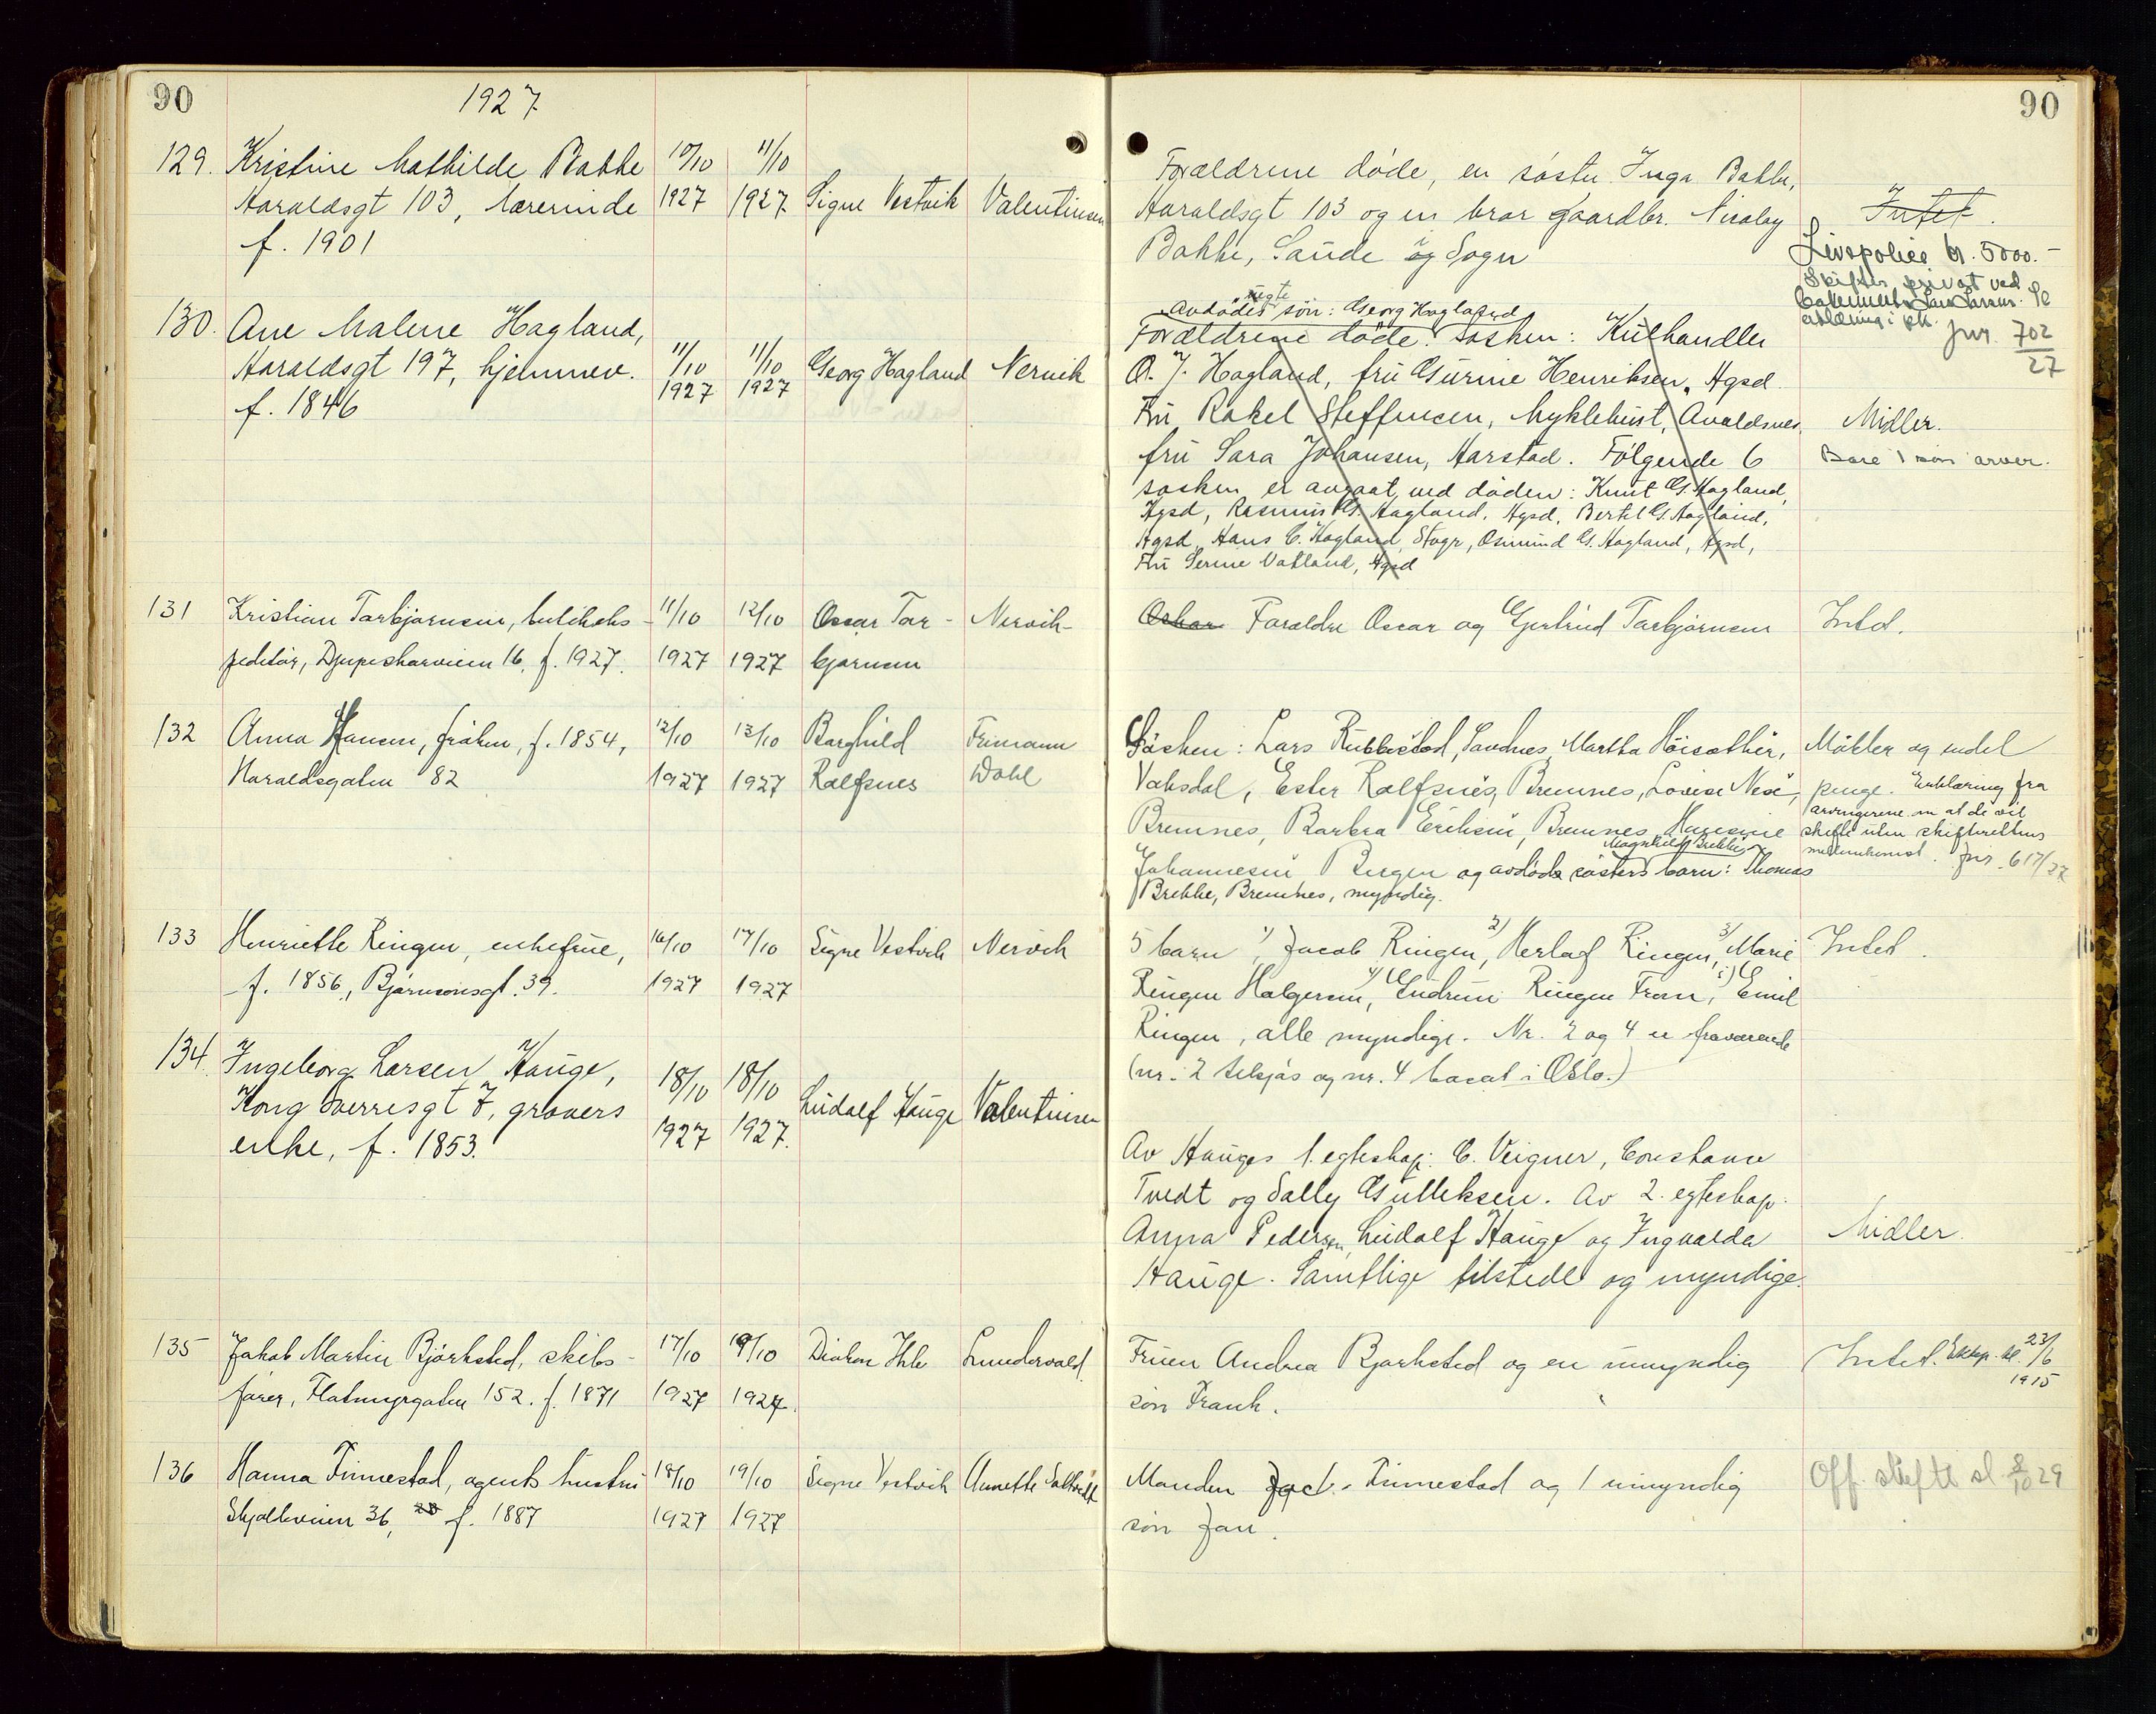 90
1927
129. Kristine Mathilde Bakke 10/10 11/10
Haraldsgt 103, lærerinde 1927 1927 Signe Vestvik Valentinsen
f. 1901
130. Ane Malene Hagland,
Haraldsgt 197, hjemmev. 11/10 11/10 Georg Hagland Nervik
f. 1846 1927 1927
131 Kristian Torbjørnsen, butikeks- 11/10 12/10 Oscar Tor- Nervik
peditør, Djupeskarveien 16, f. 1927. 1927 1927 bjørnsen
132 Anna Hansen, frøken, f. 1854, 12/10 13/10 Borghild Frimann
Haraldsgaten 82 1927 1927 Rolfsnes Dahl
133 Henriette Ringen, enkefrue, 16/10 17/10 Signe Vestvik Nervik
f. 1856, Bjørnsonsgt. 39. 1927 1927
134. Ingeborg Larsen Hauge, 18/10 18/10
Kong Sverresgt 7, gravers Ludolf Hauge Valentinsen
enke, f. 1853. 1927 1927.
135 Jakob Martin Bjørksted, skibs- 17/10 19/10 Diakon Lundervold
fører, Flotmyrgaten 152. f. 1871 1927 1927.
136 Hanna Finnestad, agents hustru 18/10 19/10 Signe Vestvik Annette
Skjoldveien 36, 28 f. 1887 1927 1927
90
Forældrene døde, en søster Inga Bakke,
Haraldsgt 103 og en bror gaardbr. Nicolay
Bakke, Sande i Sogn
Intet.
Livspolice kr. 5000.-
Skiftes privat ved
jnr. 702/27
Avdødes uegte søn: Georg Hagland
Forældrene døde. søsken: Kulhandler
O. J. Hagland, fru Gurine Henriksen, Hgsd.
Fru Rakel Steffensen, Myklebust, Avaldsnes, Midler.
fru Sara Johansen, Harstad. Følgende 6 Bare 1 søn arver.
søsken er avgaat ved døden: Knut G. Hagland,
Hgsd, Rasmus G. Hagland, Hgsd, Bertel G. Hagland,
Hgsd, Hans C. Hagland, Stvgr, Osmund G. Hagland, Hgsd,
Fru Serine Vatland, Hgsd
Oskar Forældre Oscar og Gjertrud Torbjørnsen Intet.
Søsken: Lars Rubbestad, Sandnes, Martha Høisæther, Møbler og endel
Vaksdal, Ester Rolfsnes, Bremnes, Lovise Nese, penge. Erklæring fra
arvingerene om at de vil
Bremnes, Barbra Eriksen, Bremnes, Hansine skifte uten skifterettens
medvirkning. Jnr. 617/27
Magnhild Brekke
Johannesen Bergen og avdøde søsters barn: Thomas
Brekke, Bremnes, myndig.
5 barn 1) Jacob Ringen, 2) Herlof Ringen, 3) Marie Intet.
Ringen Holgersen, 4) Gudrun Ringen Fron, 5) Emil
Ringen, alle myndige. Nr. 2 og 4 er fraværende
(nr. 2 tilsjøs og nr. 4 bosat i Oslo.)
Av Hauges 1. egteskap: C. Veigner, Constance
Tvedt og Sally Gulleksen. Av 2. egteskap:
Anna Pedersen, Ludolf Hauge og Ingvalda Midler.
Hauge. Samtlige tilstede og myndige.
Fruen Andrea Bjørksted og en umyndig Intet. 23/6
1915
søn Frank.
Manden Jack. Finnestad og 1 umyndig Off. skifte sl. 8/10 29
søn Jan.